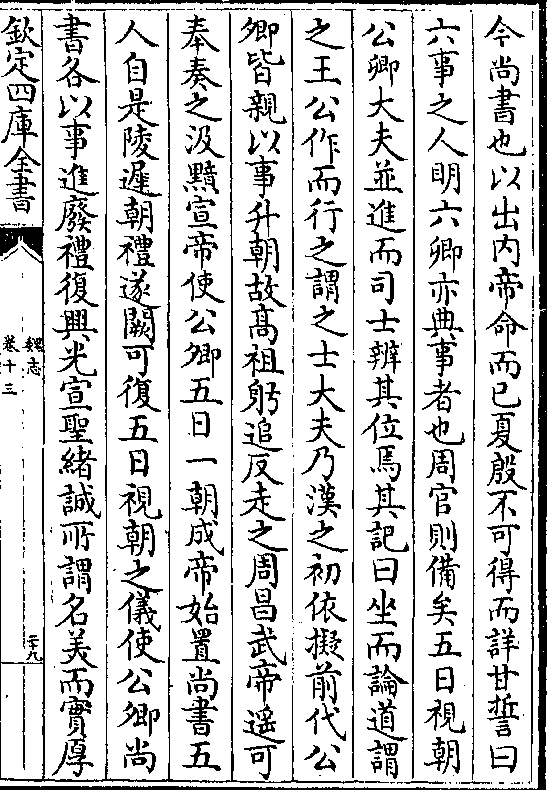 今尚書也以出内帝命而已夏殷不可得而詳甘誓曰
六事之人明六卿亦典事者也周官則備矣五日視朝
公卿大夫並進而司士辨其位焉其記曰坐而論道謂
之王公作而行之謂之士大夫乃漢之初依擬前代公
卿皆親以事升朝故高祖躬追反走之周昌武帝遥可
奉奏之汲黯宣帝使公卿五日一朝成帝始置尚書五
人自是陵遲朝禮遂闕可復五日視朝之儀使公卿尚
書各以事進廢禮復興光宣聖緒誠所謂名美而實厚
欽定四庫全書
魏志
卷十三
二十九